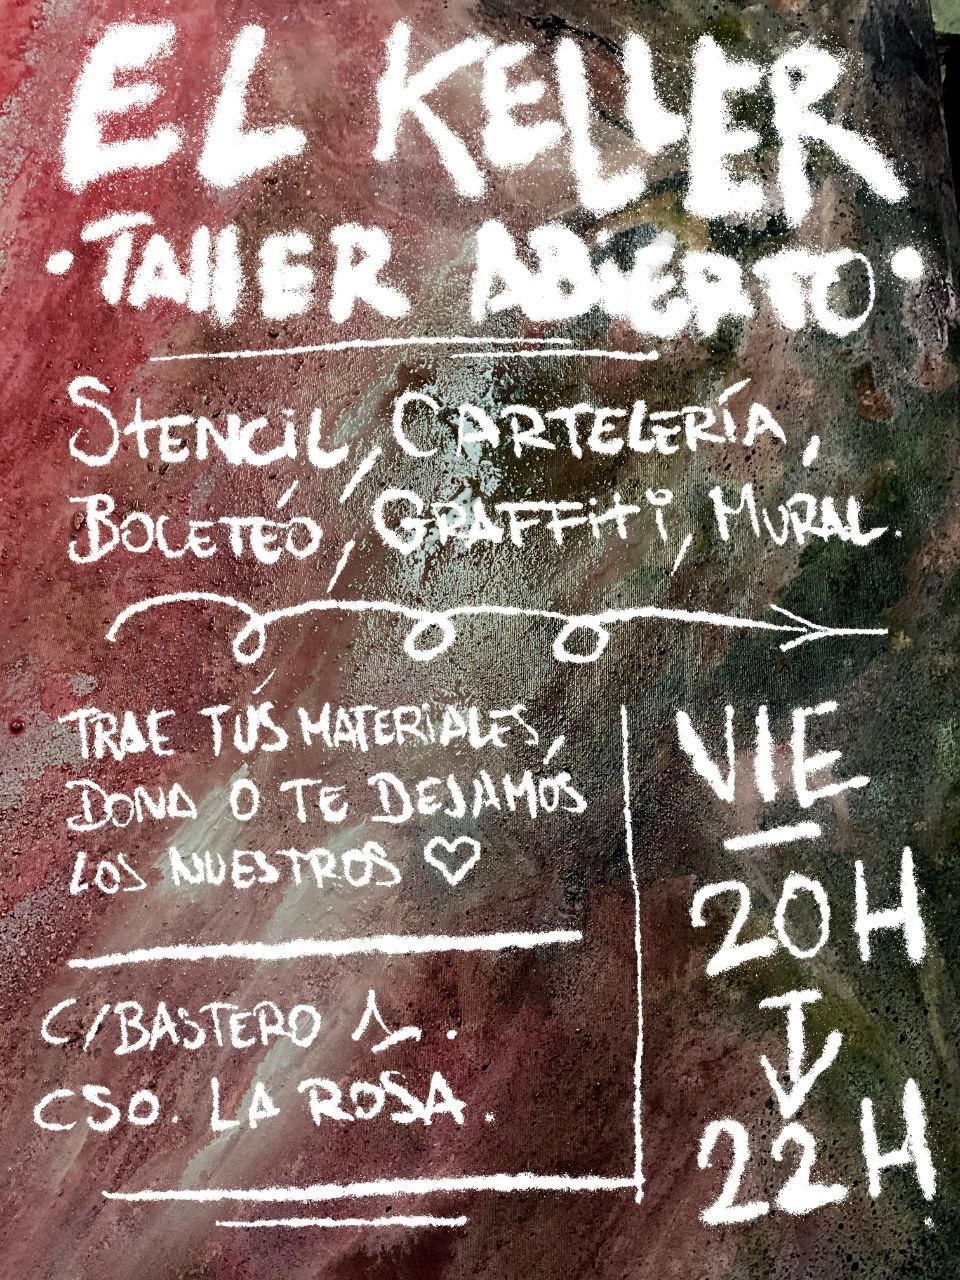 EL KELLER
· TALLER ABIERTO ·
STENCIL, CARTELERÍA,
BOCETEO, GRAFFITI, MURAL.
TRAE TUS MATERIALES,
DONA O TE DEJAMOS
LOS NUESTROS ♡
C/BASTERO 1.
CSO. LA ROSA.
VIE
20H
↓
22H.